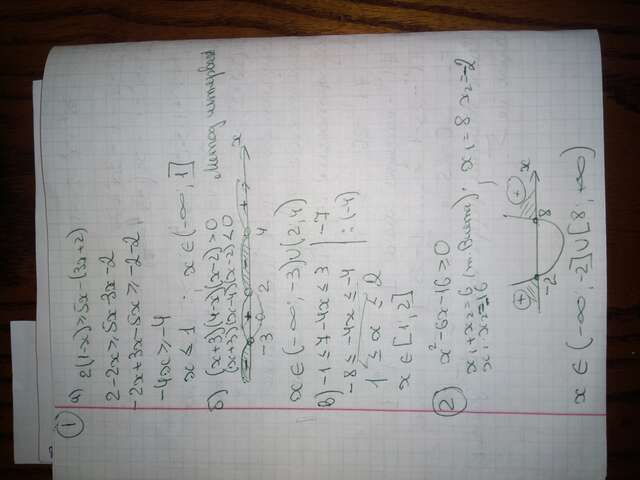 ① а) 2(1-x)≥5x-(3x+2)
2-2x≥5x-3x-2
-2x+3x-5x≥-2-2
-4x≥-4
x≤1 ; x∈(-∞, 1]
б) (x+3)(4-x)(x-2)>0 Метод интервалов
(x+3)(x-4)(x-2)<0
- + - + x
-3 2 4
x∈(-∞, -3)∪(2,4)
в) -1≤7-4x≤3 |-7
-8≤-4x≤-4 |:(-4)
1≤x≤2
x∈[1,2]
② x²-6x-16≥0
x₁+x₂=6 (т. Виета); x₁=8 x₂=-2
x₁x₂=-16
+ + x
-2 8
x∈(-∞,-2]∪[8;+∞)